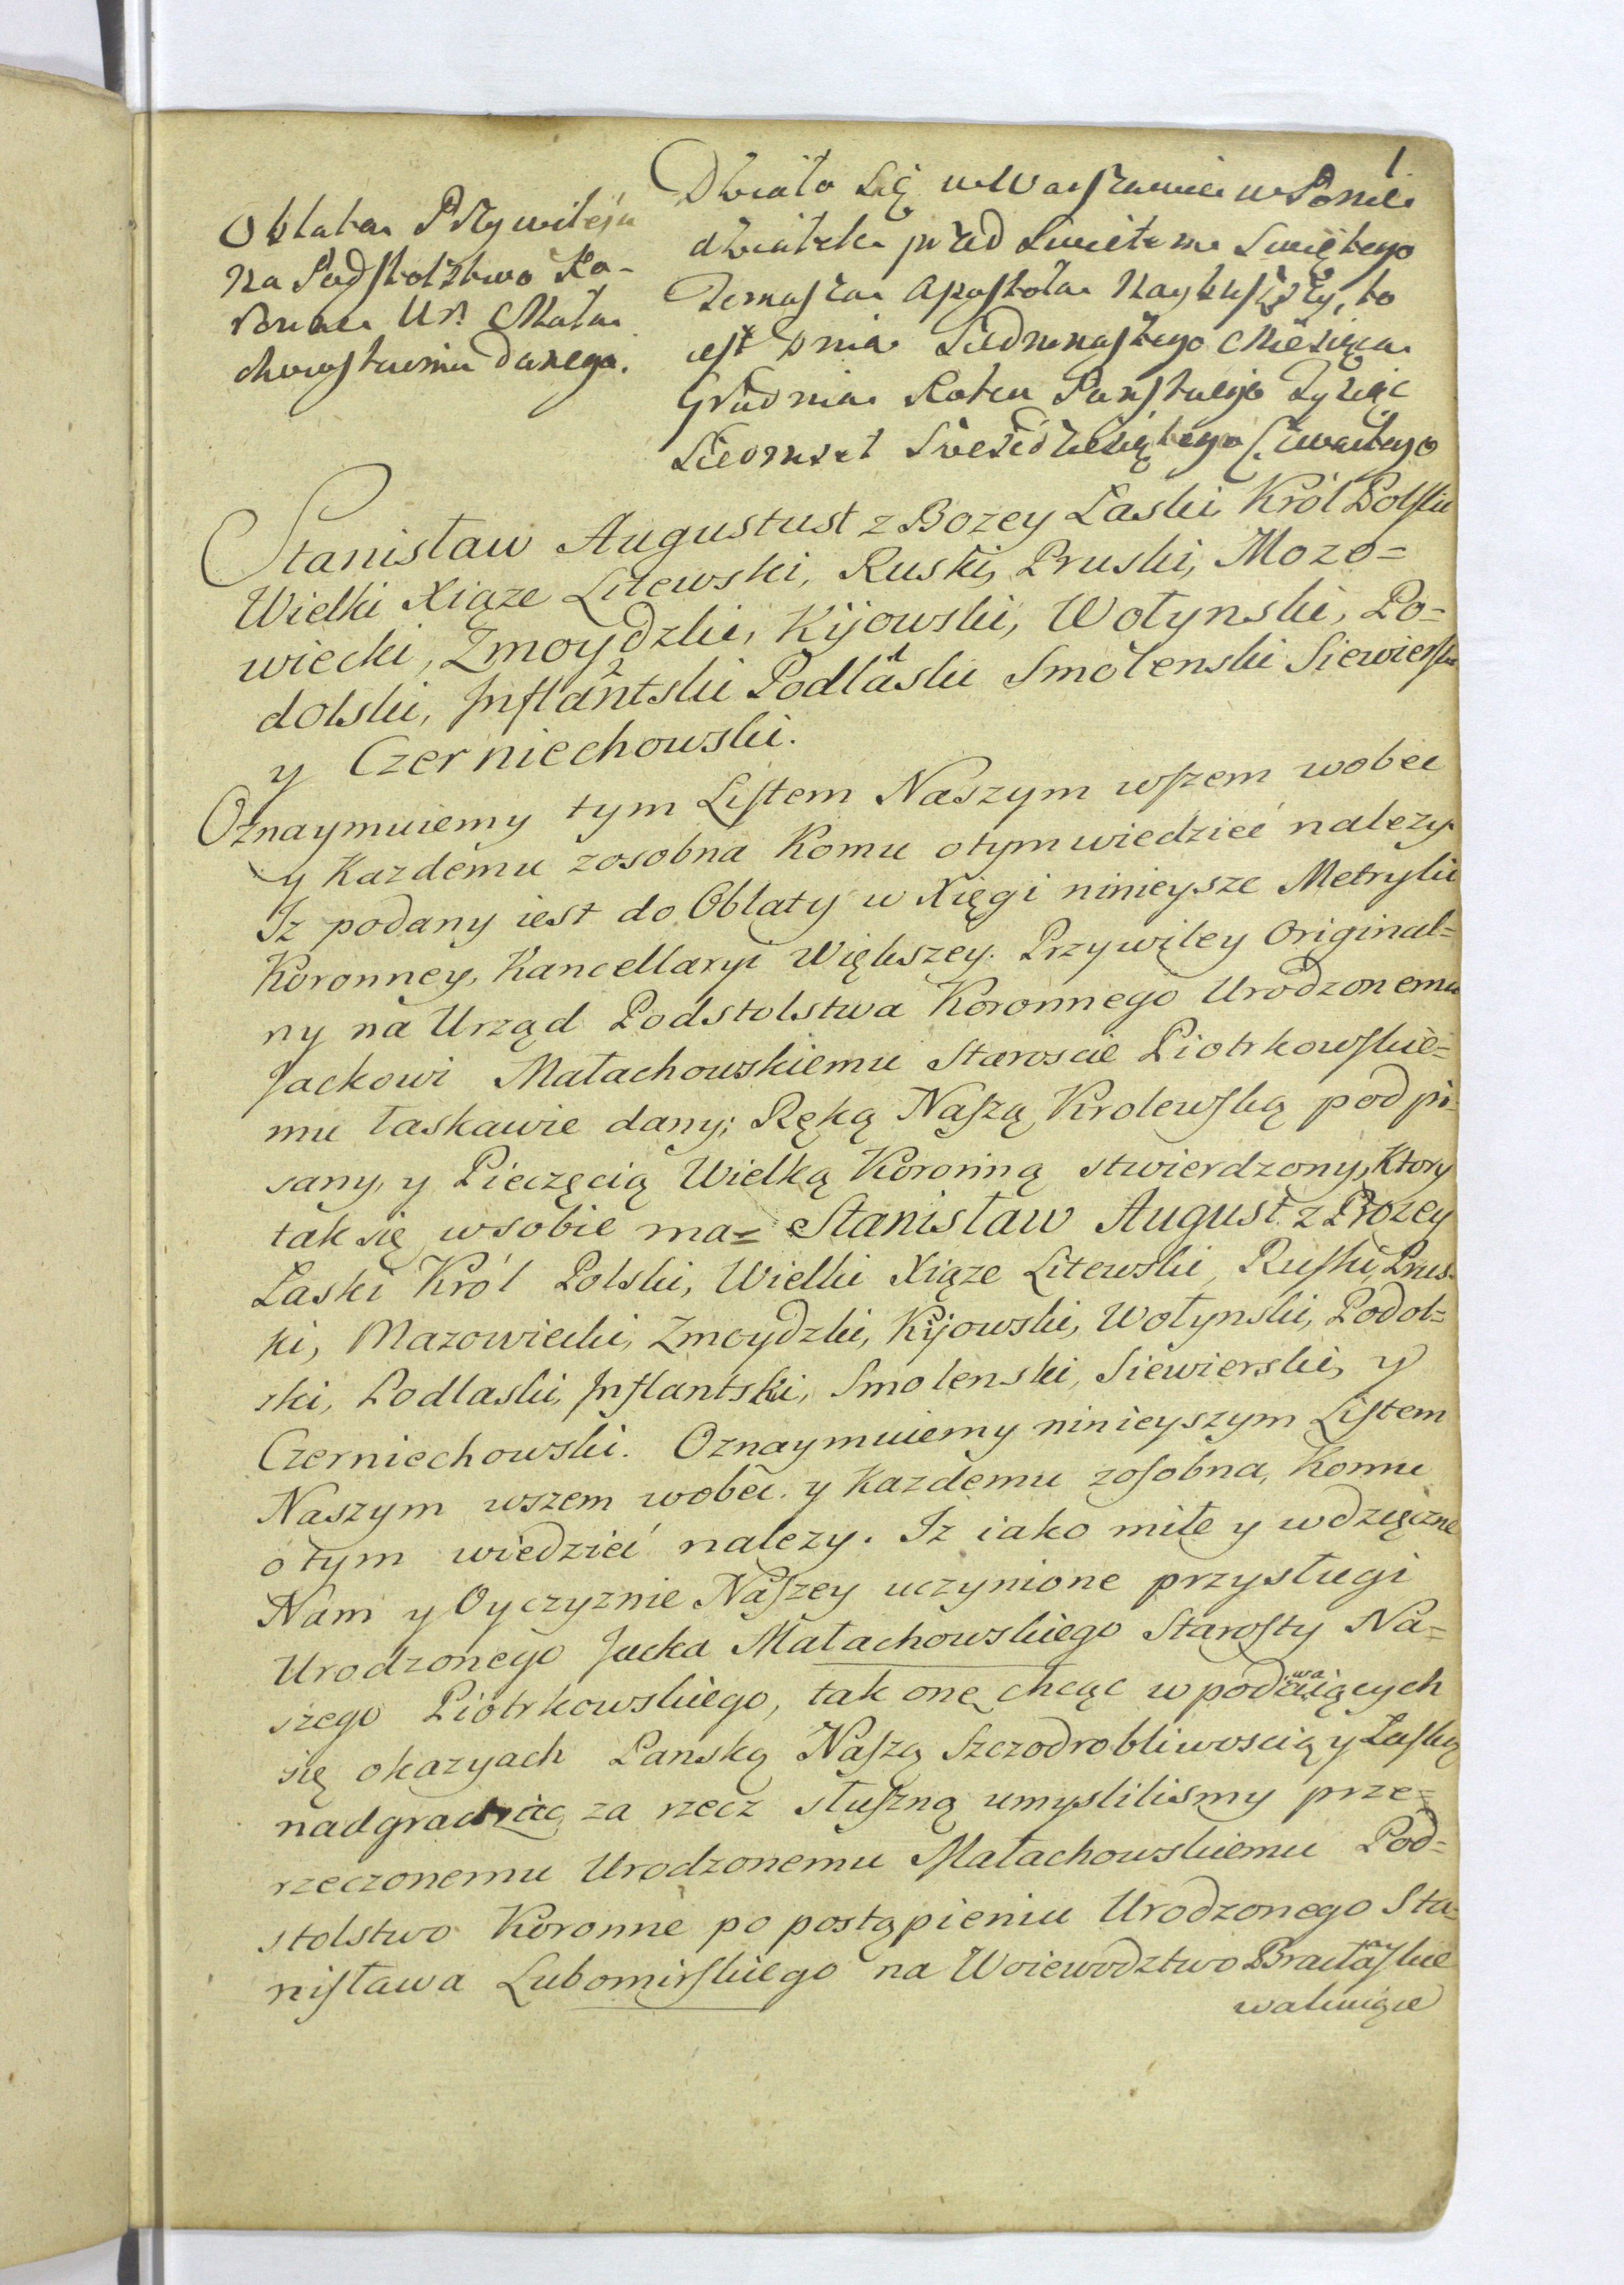 1
Oblata Przywileju
Na Podstolstwo Ko-
ronne Ur. Mała
chowskiemu danego.
Działo się w Warszawie w Ponie
działek przed Swiętem Swiętego
Tomasza Apostoła Nayblyższy, to
iest Dnia Siedmnastego Miesiąca
Grudnia Roku Panskiego Tysiąc
Siedmset Szescdziesiątego Czwartego
Stanisław Augustust z Bozey Łaski Król Polski
Wielki Xiąze Litewski, Ruski, Pruski, Mozo=
wiecki, Zmoydzki, Kijowski, Wołynski, Po=
dolski, Inflantski 2 Podlaski 1 Smolenski Siewierski
y Czerniechowski.
Oznaymuiemy tym Listem Naszym wszem wobec
y Kazdemu zosobna Komu otym wiedzieć nalezy.
Iz podany iest do Oblaty w Xięgi ninieysze Metryki
Koronney, Kancellaryi Większey. Przywiley Original=
ny na Urząd Podstolstwa Koronnego Urodzonemu
Jackowi Małachowskiemu Staroscie Piotrkowskie=
mu łaskawie dany; Ręką Naszą Krolewską podpi=
sany, y Pieczęcią Wielką Koronną stwierdzony, Ktory
tak się wsobie ma= Stanisław August z Bozey
Łaski Król Polski, Wielki Xiąze Litewski, Ruski, Prus=
ki, Mazowiecki, Zmoydzki, Kijowski, Wołynski, Podol=
ski, Podlaski, Inflantski, Smolenski, Siewierski, y
Czerniechowski. Oznaymuiemy ninieyszym Listem
Naszym wszem wobec. y Kazdemu zosobna, Komu
o tym wiedzieć nalezy. Iz iako miłe y wdzięczne
Nam y Oyczyznie Naszey uczynione przysługi
Urodzonego Jacka Małachowskiego Starosty Na=
szego Piotrkowskiego, tak onę chcąc w podawaiących
się okazyach Panską Naszą Szczodrobliwoscią y Łaską
nadgradzać za rzecz słuszną umyslilismy prze=
rzeczonemu Urodzonemu Małachowskiemu Pod=
stolstwo Koronne po postąpieniu Urodzonego Sta=
nisława Lubomirskiego na Woiewodztwo Bracławskie
wakuiące